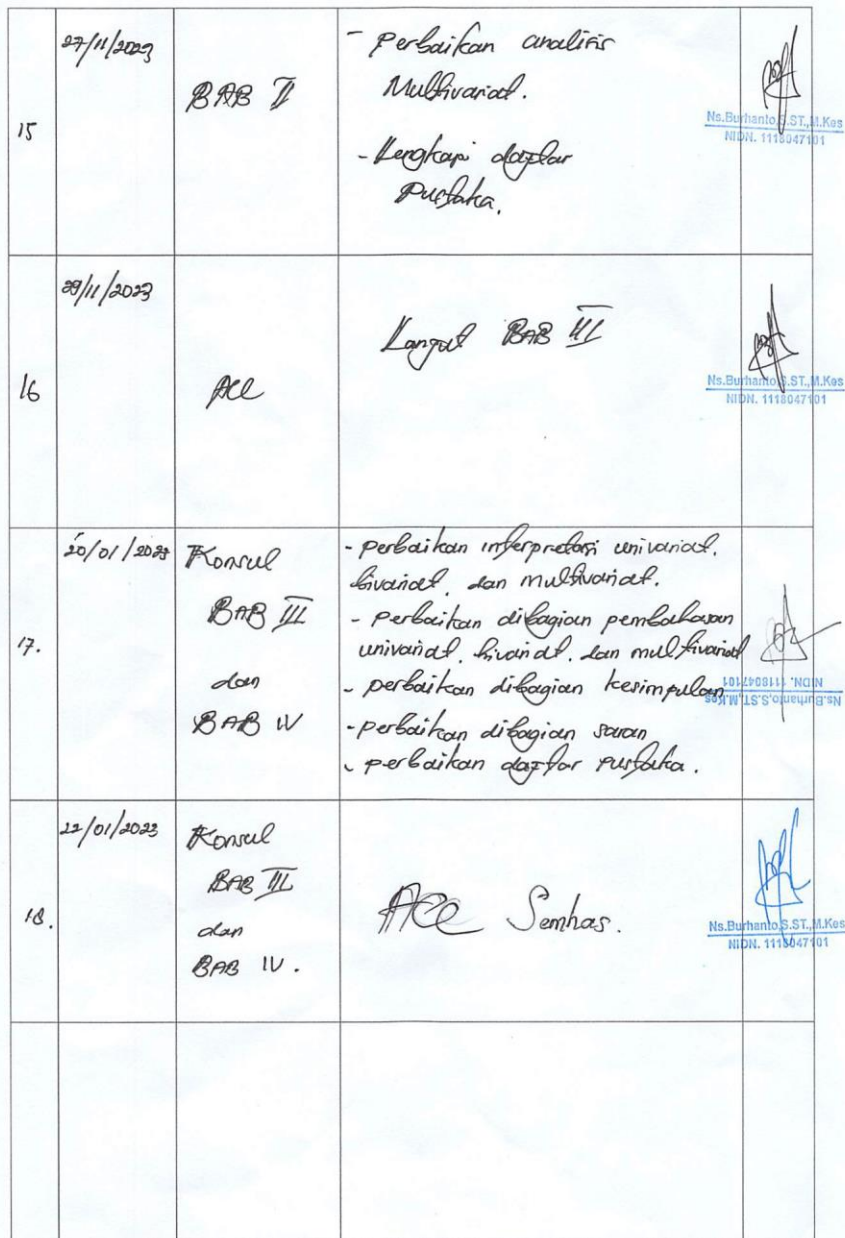 15
27/11/2023
BAB II
- perbaikan analisis
Multivariat.
- Lengkapi daftar
Pustaka.
Ns.Burhanto,S.ST.,M.Kes
NIDN. 1118047101
16
29/11/2023
ACC
Lanjut BAB III
Ns.Burhanto,S.ST.,M.Kes
NIDN. 1118047101
17.
20/01/
Konsul
BAB III
dan
BAB IV
- perbaikan interpretasi univariat,
bivariat, dan multivariat.
- perbaikan dibagian pembahasan
univariat, bivariat, dan multivariat
- perbaikan dibagian kesimpulan
- perbaikan dibagian saran
- perbaikan daftar pustaka.
Ns.Burhanto,S.ST.,M.Kes
NIDN. 1118047101
18.
22/01/2023
Konsul
BAB III
dan
BAB IV.
ACC Semhas.
Ns.Burhanto,S.ST.,M.Kes
NIDN. 1118047101